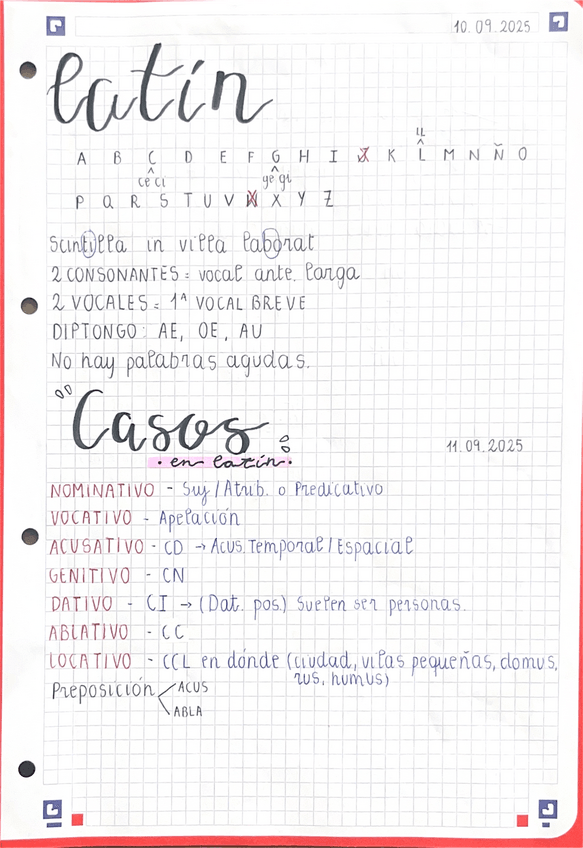 10.09.2025
latín
LL
A B C D E F G H I J K L M N Ñ O
ce ci ge gi
P Q R S T U V W X Y Z
Scintilla in villa laborat
2 CONSONANTES = vocal ante. larga
2 VOCALES = 1ª VOCAL BREVE
DIPTONGO: AE, OE, AU
No hay palabras agudas.
Casos
11.09.2025
· en latín ·
NOMINATIVO - Suj / Atrib. o Predicativo
VOCATIVO - Apelación
ACUSATIVO - CD → Acus. Temporal / Espacial
GENITIVO - CN
DATIVO - CI → (Dat. pos.) Suelen ser personas.
ABLATIVO - CC
LOCATIVO - CCL en dónde (ciudad, villas pequeñas, domus,
rus, humus)
Preposición ACUS
ABLA